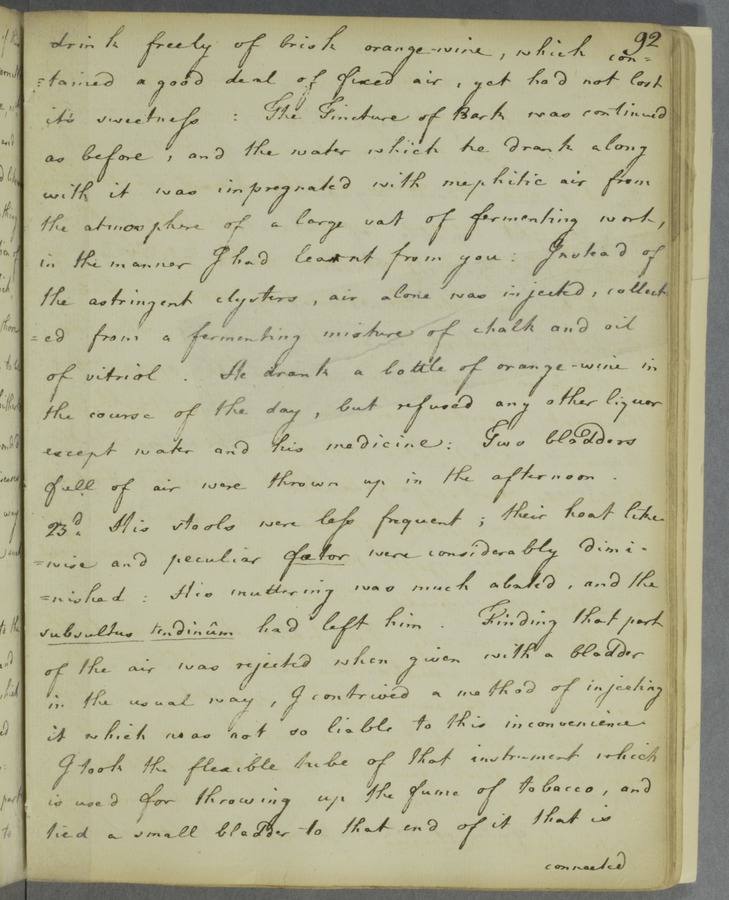 92
drink freely of brisk orange-wine, which con=
=tained a good deal of fixed air, yet had not lost
it's sweetness : The Tincture of Bark was continued
as before, and the water which he drank along
with it was impregnated with mephitic air from
the atmosphere of a large vat of fermenting work,
in the manner I had learnt from you : Instead of
the astringent clysters, air alone was injected, collect
=ed from a fermenting mixture of chalk and oil
of vitriol . He drank a bottle of orange-wine in
the course of the day, but refused any other liquor
except water and his medicine : Two bladders
full of air were thrown up in the afternoon .
23d. His stools were less frequent ; their heat like
=wise and peculiar fœtor were considerably dimi-
=nished : His muttering was much abated, and the
subsultus tendinûm had left him . Finding that part
of the air was rejected when given with a bladder
in the usual way, I contrived a method of injecting
it which was not so liable to this inconvenience
I took the flexible tube of that instrument which
is used for throwing up the fume of tobacco, and
tied a small bladder to that end of it that is
connected